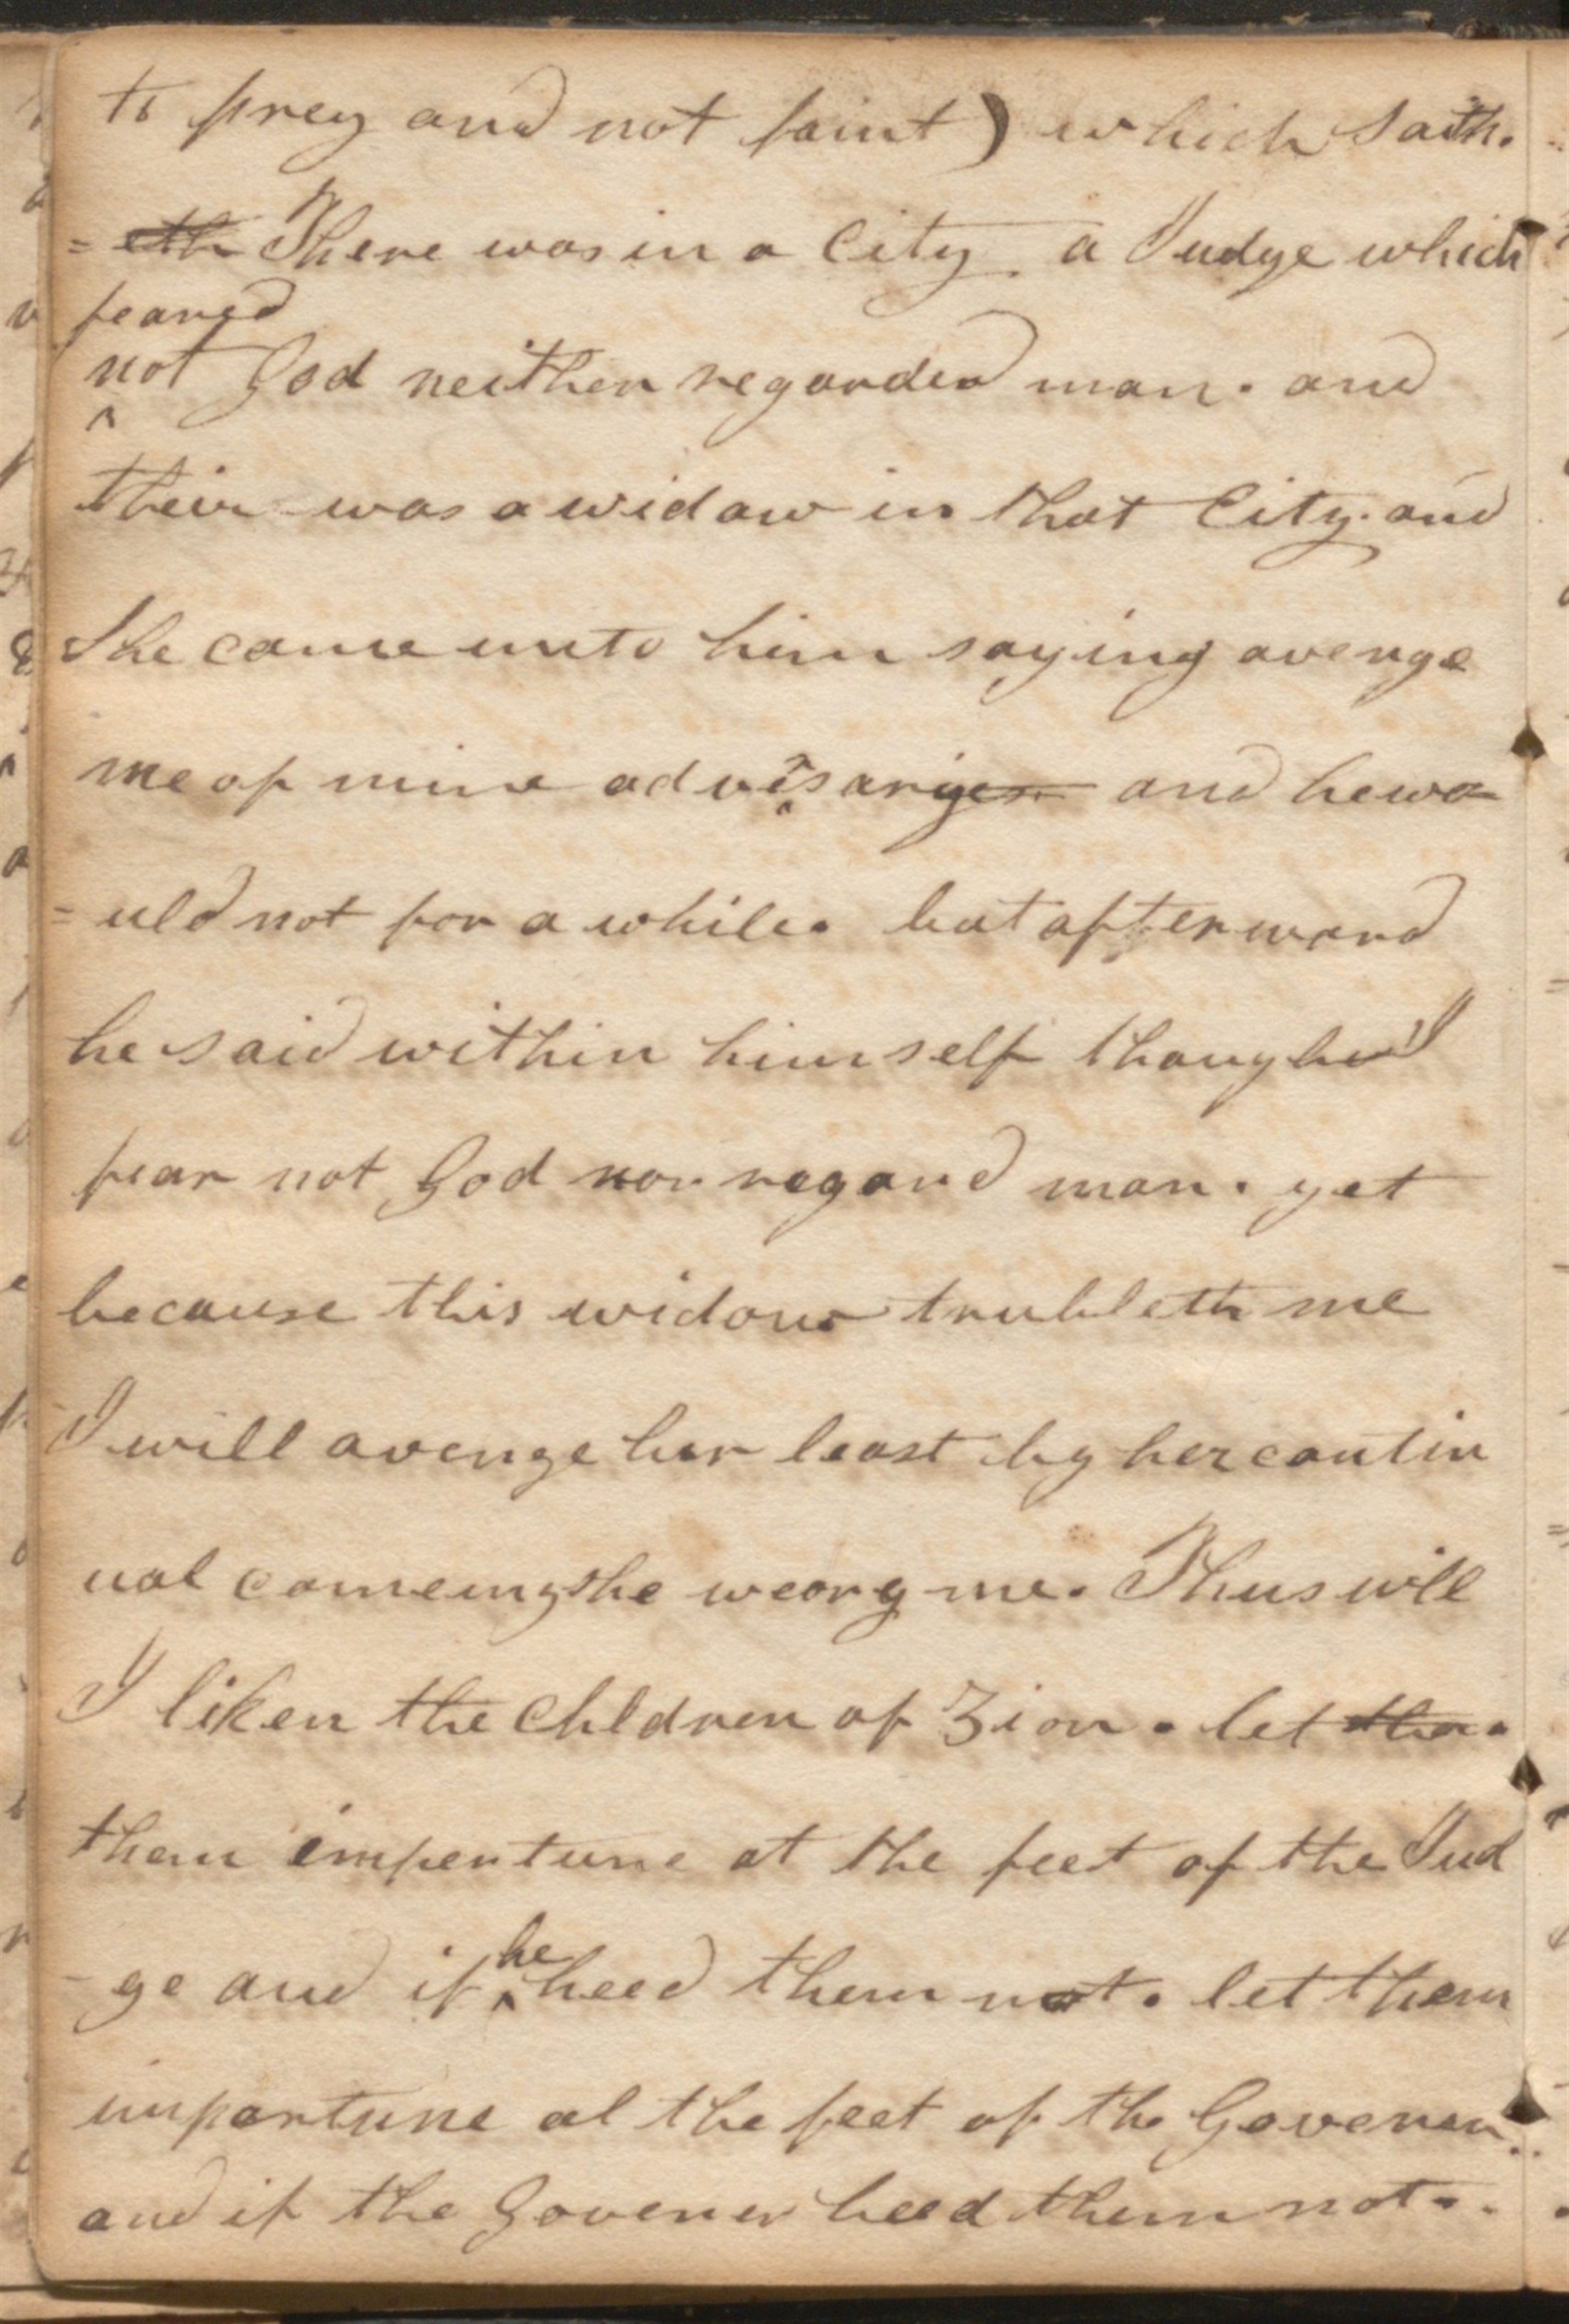 to prey and not faint) which saith.
= eth There was in a City. a Judge which
feared
not God neither regarded man. and
their was a widaw in that City. and
She came unto him saying avenge
me of mine advirsaryes and hewo
=uld not for a while. but afterward
he said within himself though I
fear not God nor regard man. yet
because this widow trubleth me
I will avenge her least by her contin
ual comeing she weary me. Thus will
I liken the Chldren of Zion. let the.
them impertune at the feet of the Jud
-ge and if he heed them not. let them
importune at the feet of the Govener.
and if the Govener heed them not..